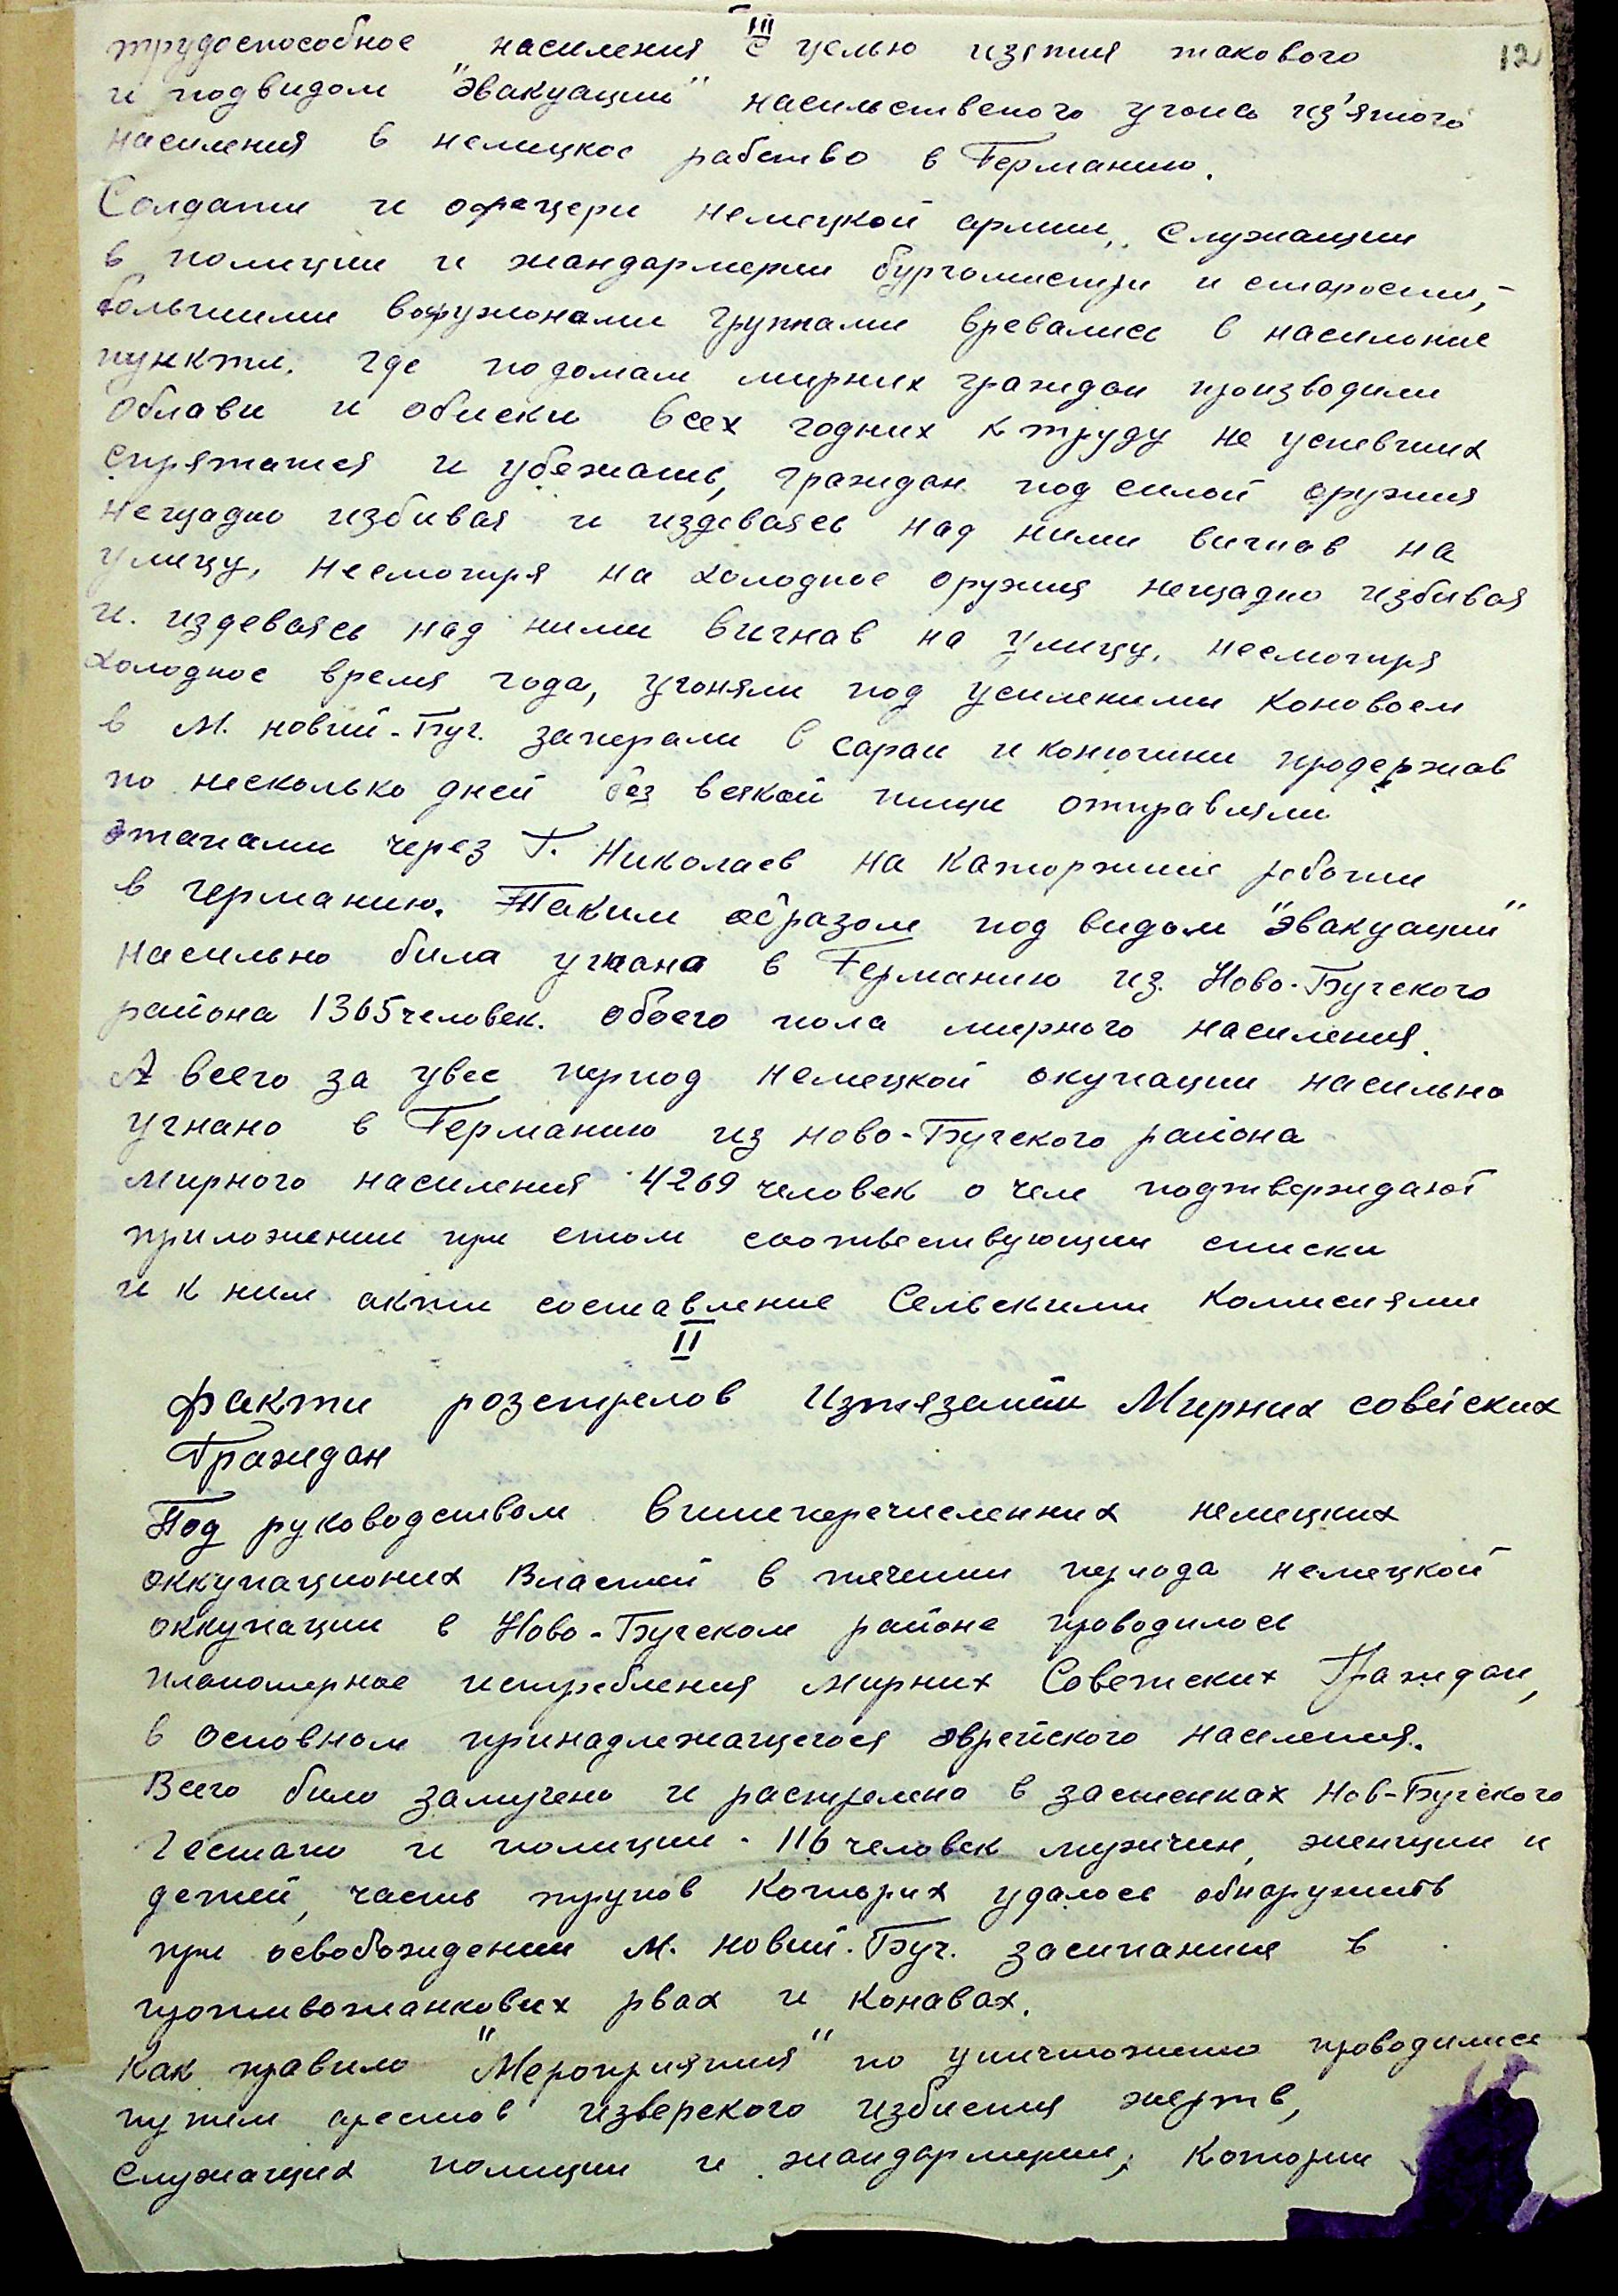 III
12
трудоспособное населения с целью изятия такового
и подвидом "Эвакуации" насильственого угона из'ятого
населения в немицкое рабство в Германию.
Солдати и офецери немецкой армии, служащии
в полиции и жандармерии бургомистри и старости,
большими воружонами групами вревались в насилоние
пункти. где подомам мирних граждан производили
облави и обиски всех годних к труду не успевших
спрятатся и убежать, граждан под силой оружия
нещадно избивая и издеваясь над ними вигнав на
улицу, несмотиря на холодное оружия нещадно избивая
и. издеваясь над ними вигнав на улицу, несмотиря
холодное время года, угоняли под усиленими коновоем
в М. новий-Буг. заперали в сараи и конюшни продержав
по несколько дней без всякой пищи отправляли
этапами через Г. Николаев на каторжние роботи
в германию. Таким образом под видом "эвакуации"
насильно била угнана в Германию из Ново-Бугского
района 1365 человек. обоего пола мирного населения.
А всего за увес период немецкой окупации насильно
угнано в Германию из ново-Бугского района
мирного населения 4269 человек о чем подтверждают
приложении при етом соответствующии списки
и к ним акти составление Сельскими комисиями
II
факти розстрелов Изтязании Мирних совейских
Граждан
Под руководством вишеперечисленних немицких
оккупационих Властей в течении периода немецкой
оккупации в Ново-Бугском районе проводилось
планомерное истребления мирних Советских Граждан,
в основном принадлежащегося еврейского населения.
Всего било замучено и растрелено в застенках Нов-Бугского
Гестапо и полиции - 116 человек мужчин, женщин и
детей, часть трупов которих удалось обнаружить
при освобождении М. новий-Буг. засипание в
противотанкових рвах и канавах.
Как правило "Мероприятия" по уничтожению проводились
путем арестов изверского избиения жертв,
служащих полиции и жандармерии, котории